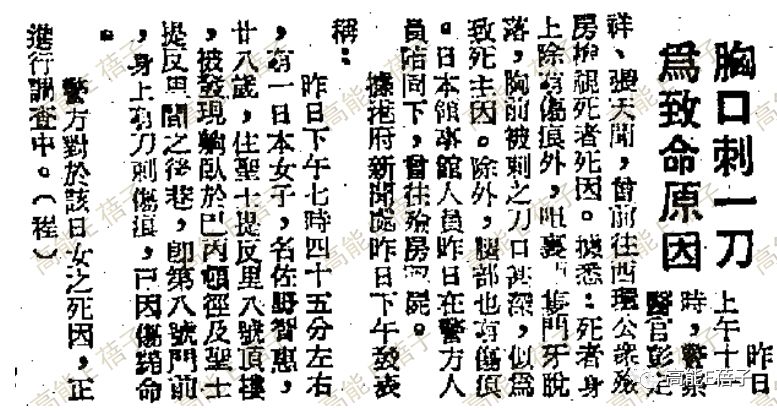 胸口刺一刀
爲致命原因
昨日
上午十
時,警察
醫官彭定
祥、張天聞,曾前往西環公衆殮
房檢視死者死因。據悉:死者身
上除有傷痕外,咀裏隻門牙脫
落,胸前被刺之刀口甚深,似爲
致死主因。除外,腿部也有傷痕
。日本領事館人員昨日在警方人
員陪同下,曾往殮房屍。
據港府新聞處昨日下午發表
稱:
昨日下午七時四十五分左右
,有一日本女子,名佐野智惠,
廿八歲,住聖士提反里八號頂樓
,被發現躺臥於巴丙頓徑及聖士
提反里間之後巷,即第八號門前
,身上有刀刺傷痕,已因傷斃命
。
警方對於該日女之死因,正
進行調查中。(程)
高能E蓓子